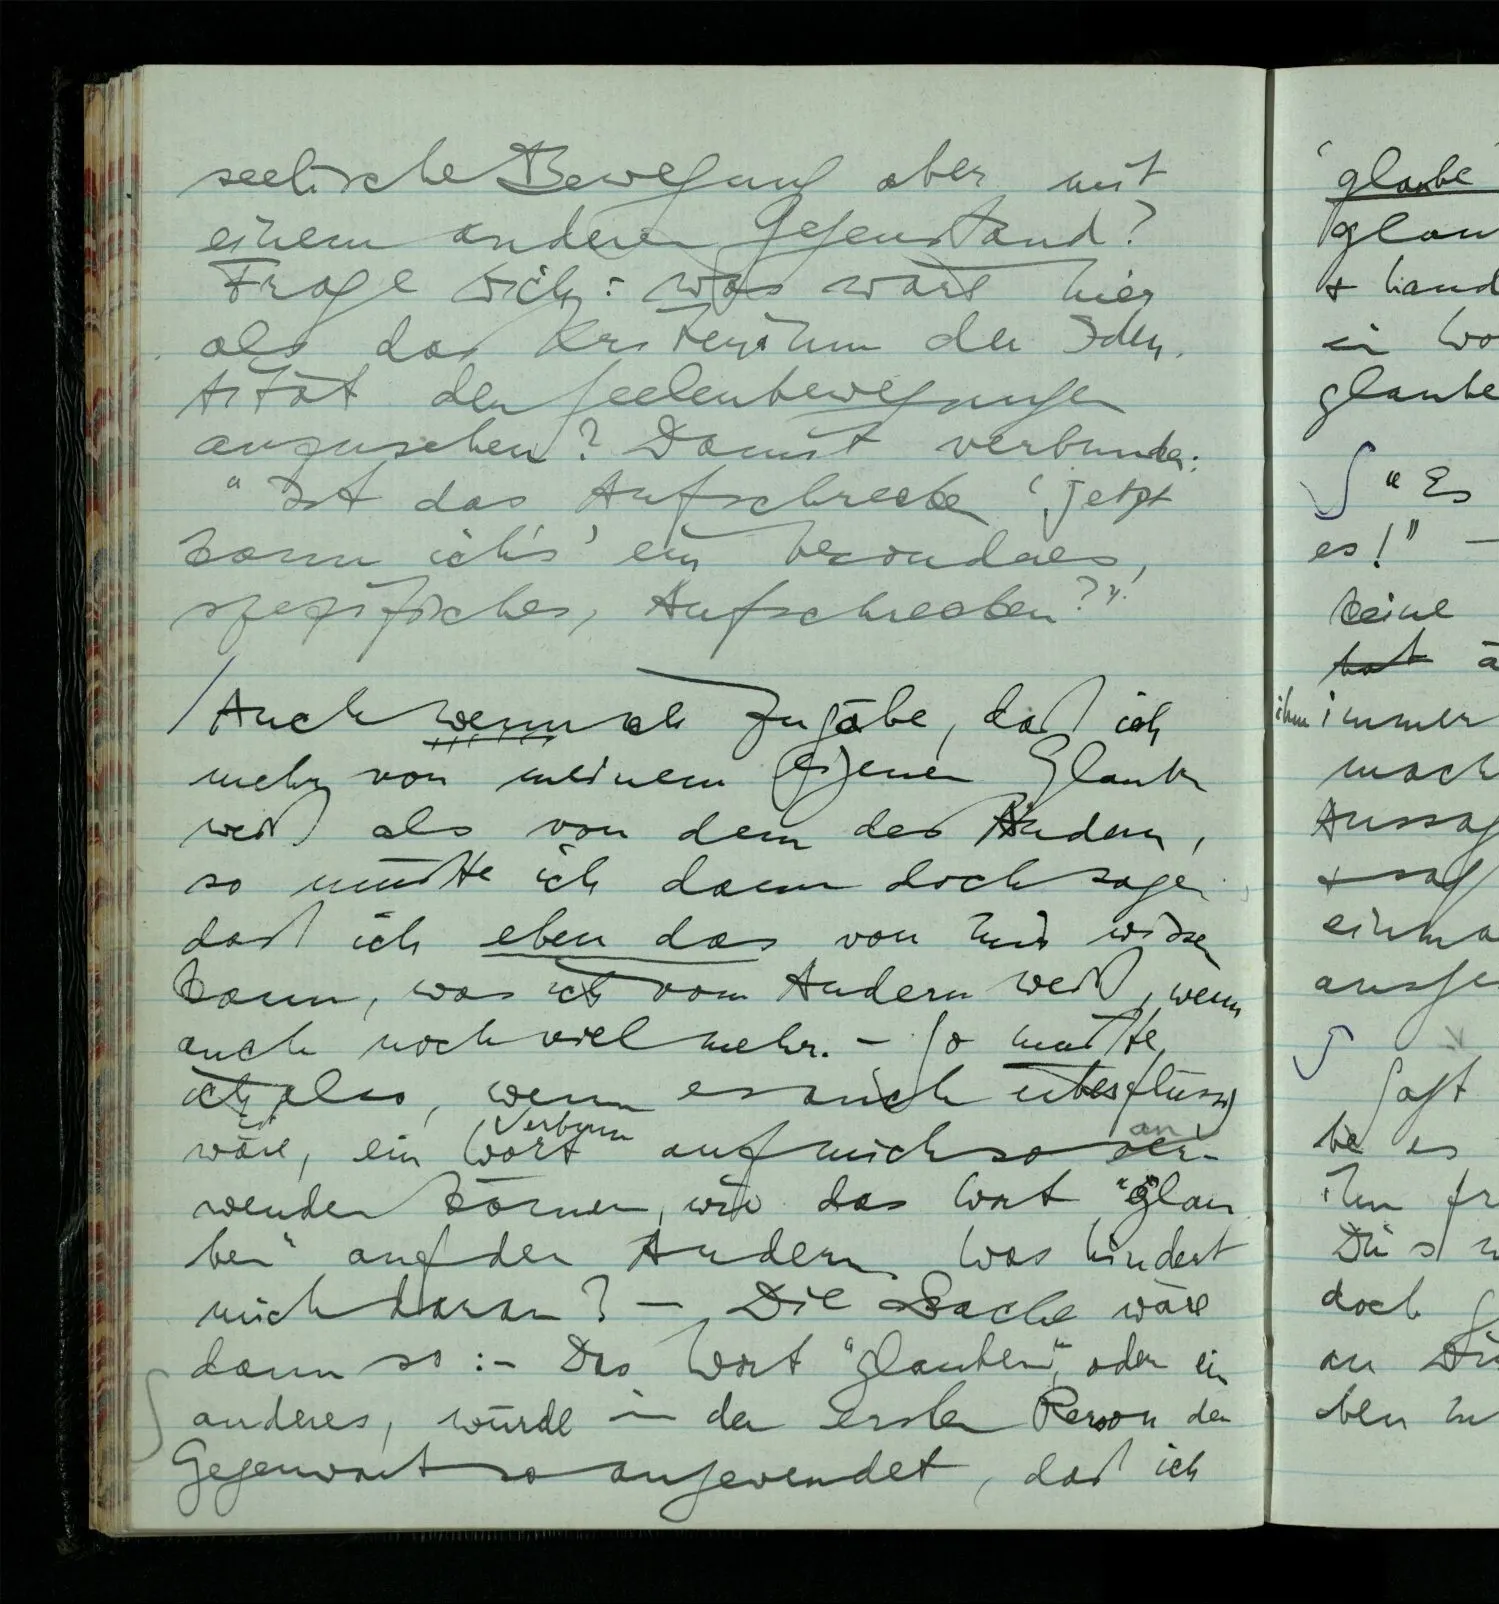 seelische Bewegung aber mit
einem anderen Gegenstand?
Frage Dich: was wäre hier
als das Kriterium der Iden-
tität der Seelenbewegungen
anzusehen? Damit verbunden:
"Ist das Aufschrecken 'jetzt
kann ich's' ein besonderes,
spezifisches, Aufschrecken?".
/ Auch wenn ich zugäbe, daß ich
mehr von meinem eigenen Glauben
weiß als von dem des Andern,
so müßte ich dann doch sagen
daß ich eben das von mir wissen
kann, was ich vom Andern weiß, wenn
auch noch viel mehr. – So müßte
ich also, wenn es auch überflüssig
Verbum
an
wäre, ein Wort auf mich so ver-
wenden können, wie das Wort "glau
ben" auf den Andern. Was hindert
mich daran? – Die Sache wäre
dann so: – Das Wort "glauben", oder ein
anderes, würde in der ersten Person der
Gegenwart so angewendet, daß ich
'glaube'
glau
+ hand
in Wo
glaube
∫ "Es
es!" –
keine
hat
ihm immer
mach
Aussag
+ sag
einma
ausge
∫ Sagt
be es
ihm fr
doch
an
ben